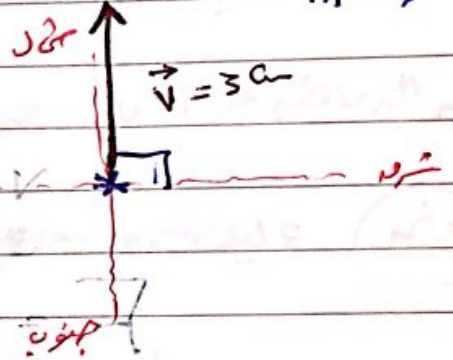 شمال
V = 3 cm
شرق
جنوب